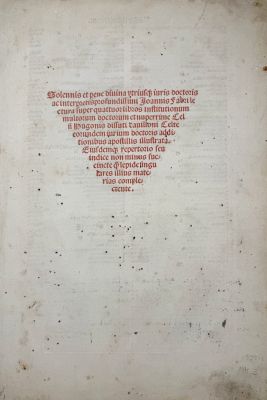 Solennis et pene divina utriusq; iuris doctoris
ac interpretis profundissimi Joannis Fabri le
ctura super quattuor libros institutionum
multorum doctorum et nuperrime Cel
Hugonis
eorumdem iurium doctoris addi
tionibus apostillis illustrata.
Eiusdemq; repertorio seu
indice non minus suc
cincte q̃ lepide singu
lares illius mate
rias comple
ctente.